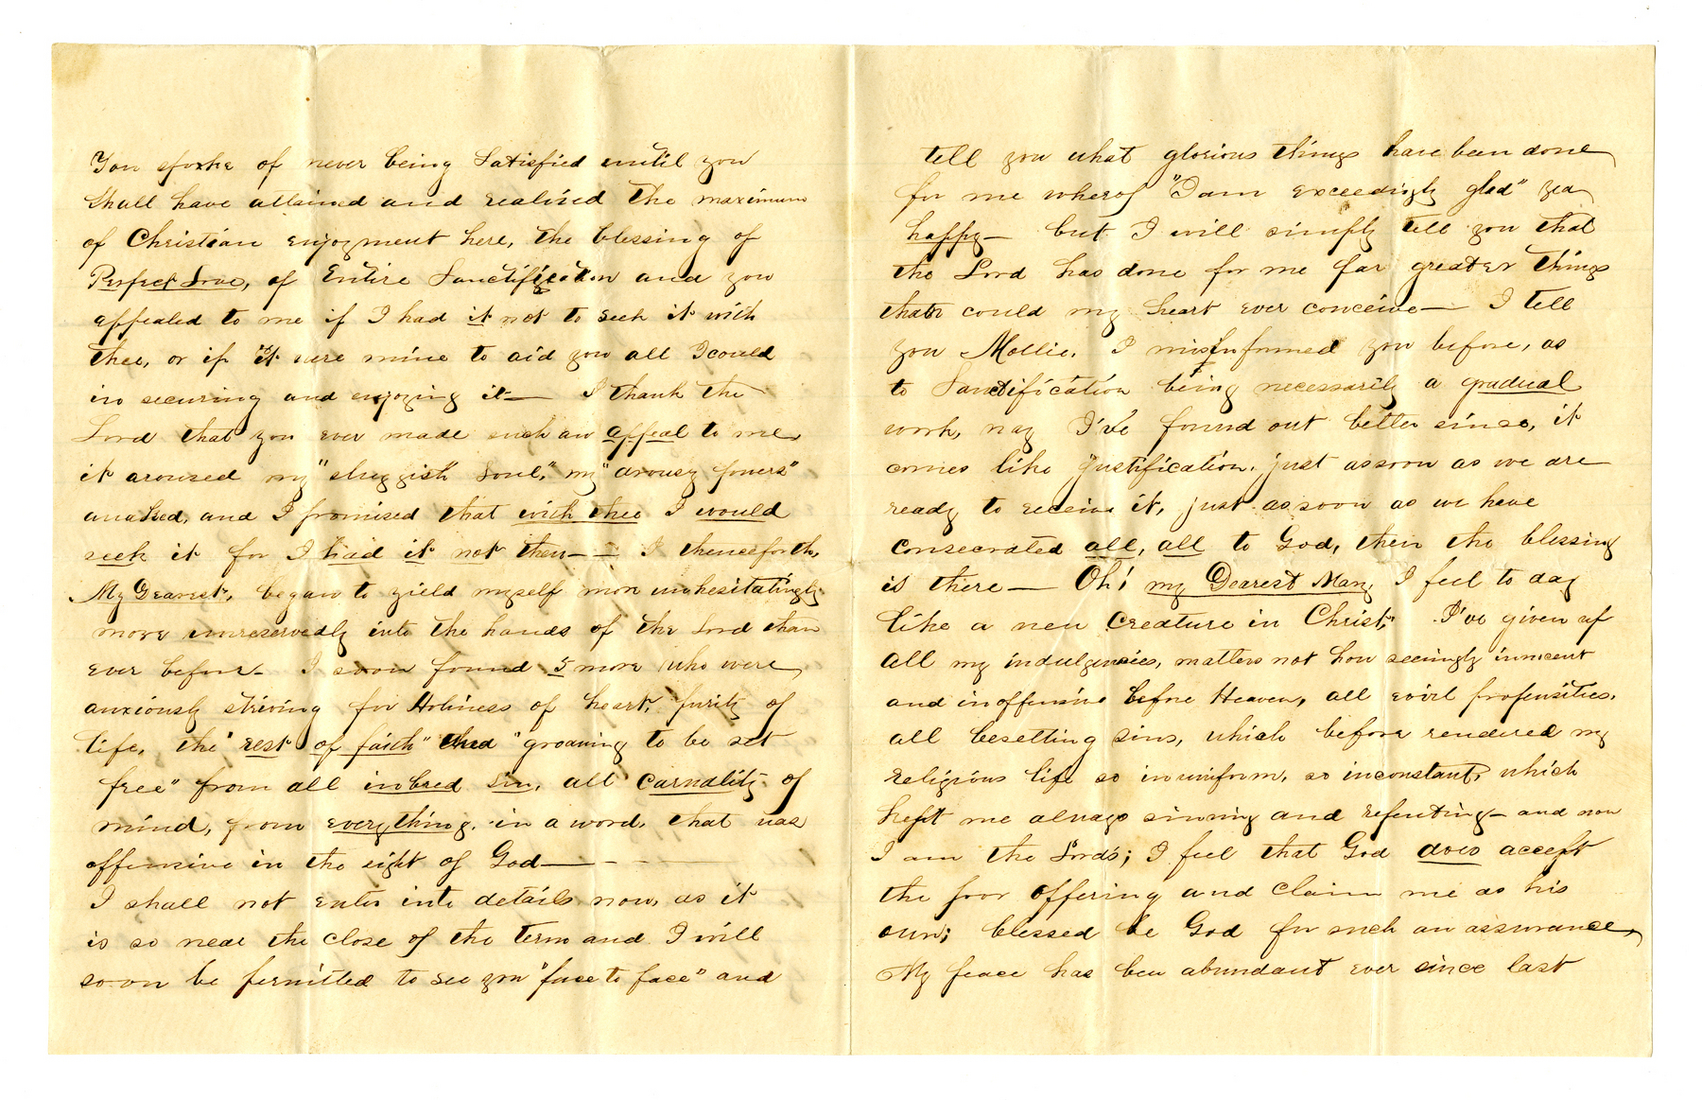 You spoke of never being satisfied until you
shall have attained and realised the maximum
of Christian enjoyment here, the blessing of
Perfect Love, of Entire Sanctification and you
appealed to me if I had it not to seek it with
thee, or if it were mine to aid you all I could
in securing and enjoying it — I thank the
Lord that you ever made such an appeal to me,
it aroused my "sluggish soul," my "drowsy powers"
awaked, and I promised that with thee I would
seek it for I had it not then — I thenceforth,
My Dearest, began to yield myself more unhesitatingly
more unreservedly into the hands of the Lord than
ever before — I soon found 5 more who were
anxiously striving for Holiness of heart, purity of
life, the "rest of faith" and "groaning to be set
free" from all inbred sin, all carnality of
mind, from everything, in a word, that was
offensive in the sight of God —
I shall not enter into details now, as it
is so near the close of the term and I will
soon be permitted to see you "face to face" and
tell you what glorious things have been done
for me whereof "I am exceedingly glad" yea
happy — but I will simply tell you that
the Lord has done for me far greater things
than could my heart ever conceive — I tell
you Mollie, I misinformed you before, as
to Sanctification being necessarily a gradual
work, nay I've found out better since, it
comes like justification, just as soon as we are
ready to receive it, just as soon as we have
consecrated all, all to God, then the blessing
is there — Oh! my Dearest Mary I feel to day
like a new creature in Christ," I've given up
all my indulgencies, matters not how seemingly innocent
and inoffensive before Heaven, all evil propensities,
all besetting sins, which before rendered my
religious life so ununiform, so inconstant, which
kept me always sinning and repenting — and now
I am the Lord's; I feel that God does accept
the poor offering and claim me as his
own; blessed be God for such an assurance,
My peace has been abundant ever since last